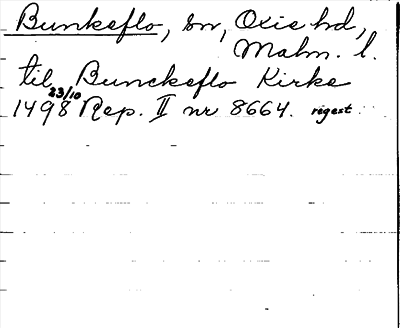 Bunkeflo, sn, Oxie hd,
Malm. l.
til Bunckeflo Kirke
23/10
1498 Rep. II nr 8664. regest